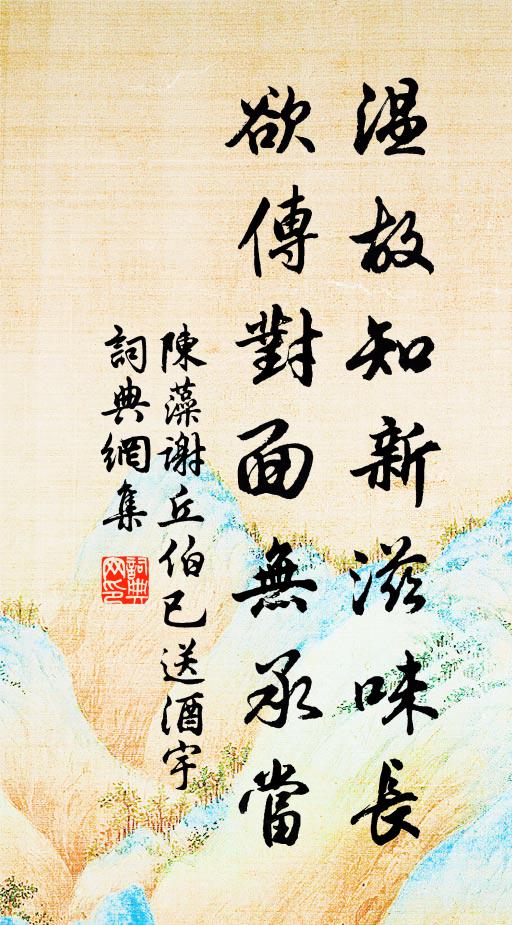 温故知新滋味長
欲傳對面無承當
陳藻謝丘伯已送酒宇
詞典網集
詞典
网印